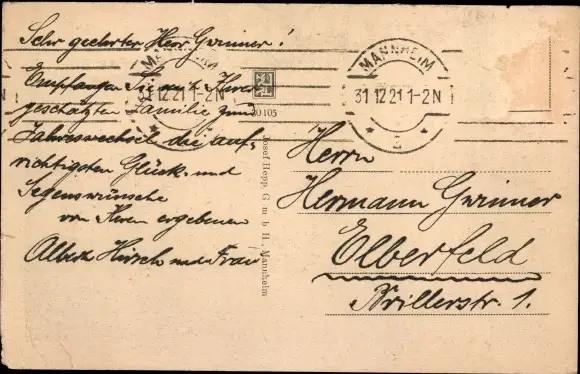 Sehr geehrter Herr Gwinner!
Empfangen Sie mit Ihrer
geschätzten Familie zum
Jahreswechsel die auf-
richtigsten Glück- und
Segenswünsche
von Ihren ergebenen
Albert Hirsch und Frau
MANNHEIM
31 12 21 1-2 N
MANNHEIM
31 12 21 1-2 N
2
Josef Hepp, G m b H., Mannheim
Herrn
Hermann Gwinner
Elberfeld
Brillerstr. 1.